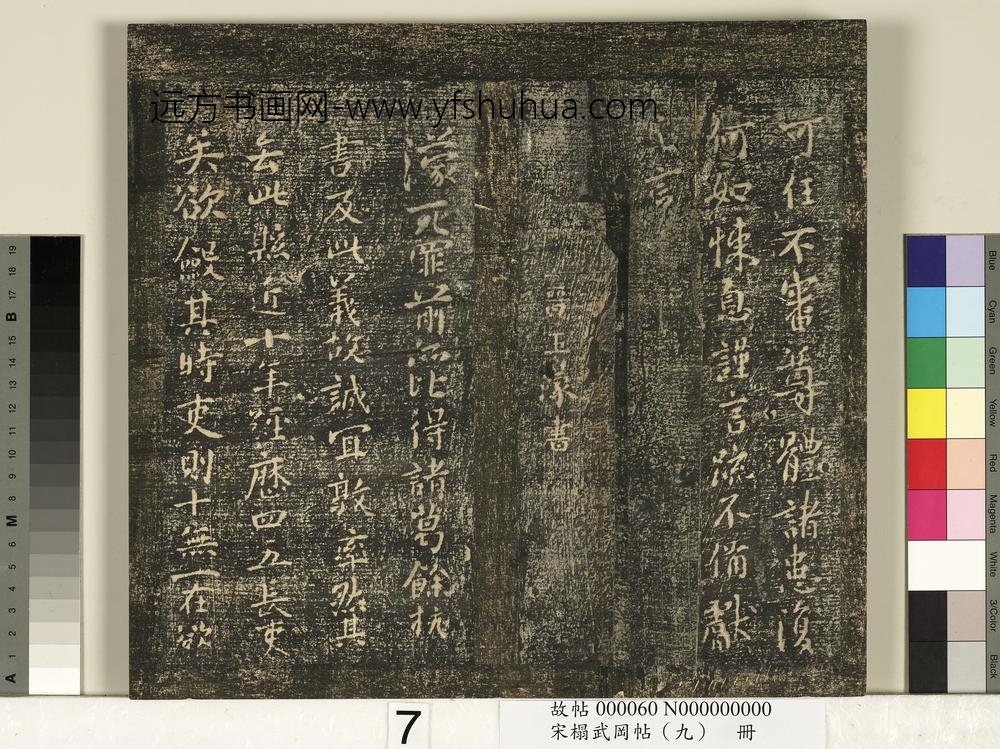 远方书画网-www.yfshuhua.com
可任不審尊體諸恙復
何如悚息謹言疏不備獻
之言
晋王濛書
濛死罪前比得諸葛餘杭
書及此義故誠宜敢率然其
去此縣近十年經歷四五長吏
矣欲斂其時吏則十無一在欲
故帖 000060 N000000000
宋榻武岡帖（九） 冊
7
19
18
B
17
16
15
14
13
12
11
10
9
8
M
7
6
5
4
3
2
1
A
Blue
Cyan
Green
Yellow
Red
Magenta
White
3/Color
Black